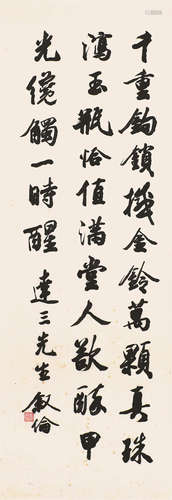 千重鉤鎖撼金鈴萬顆真珠
瀉玉瓶恰值滿堂人欲醉甲
光纔觸一時醒 達三先生 叙倫